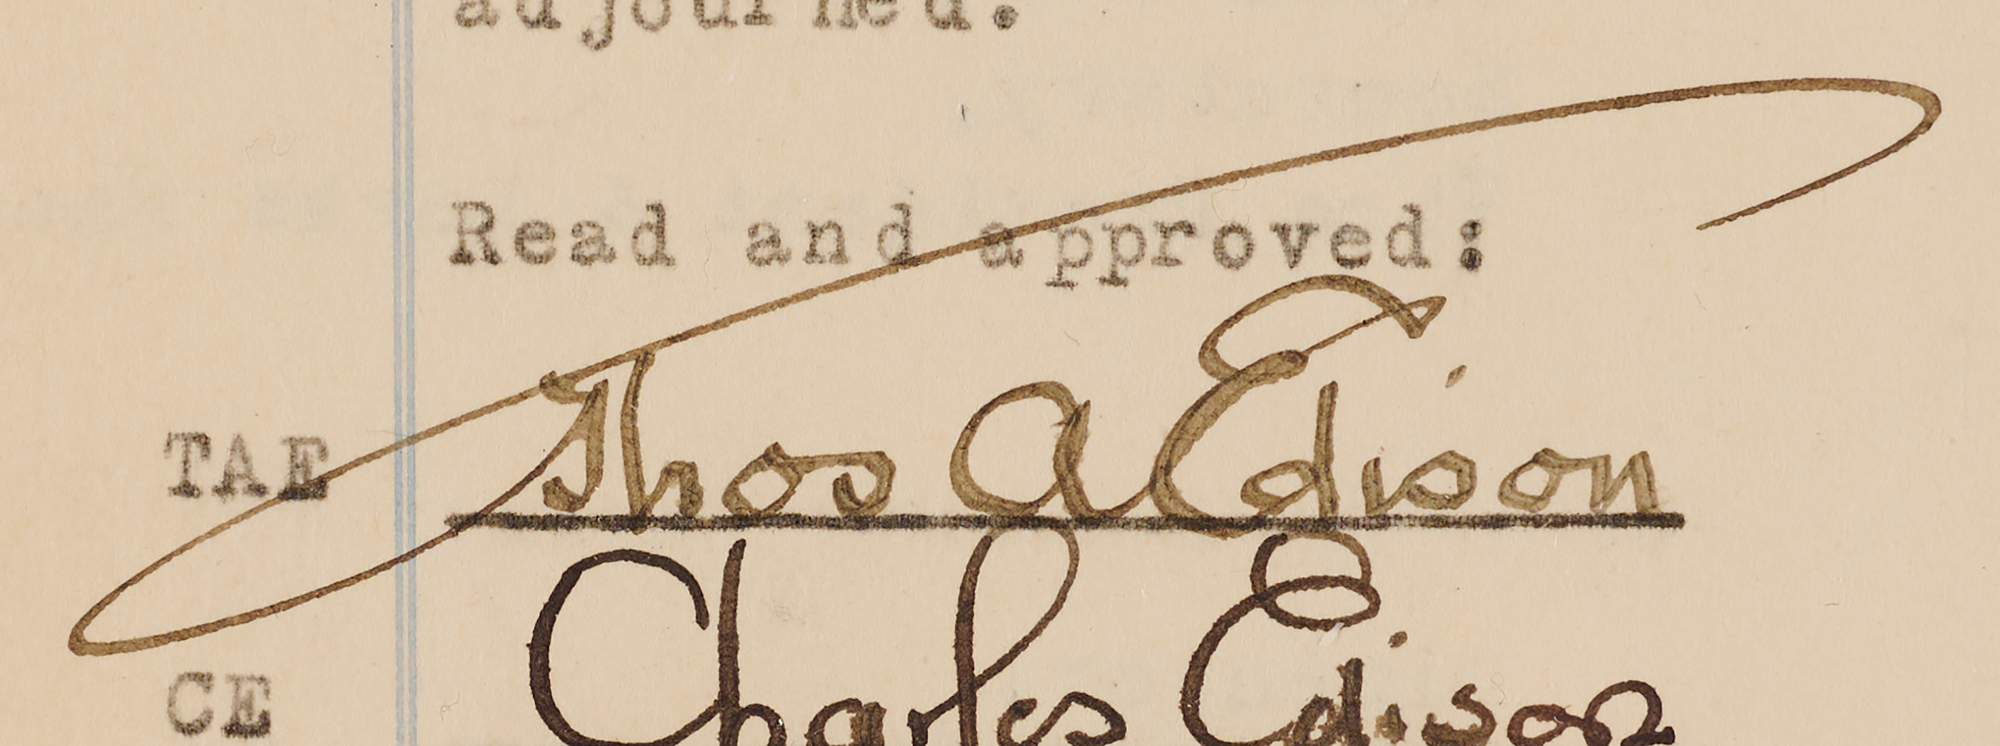 adjourned.
Read and approved:
TAE Thos A Edison
CE Charles Edison